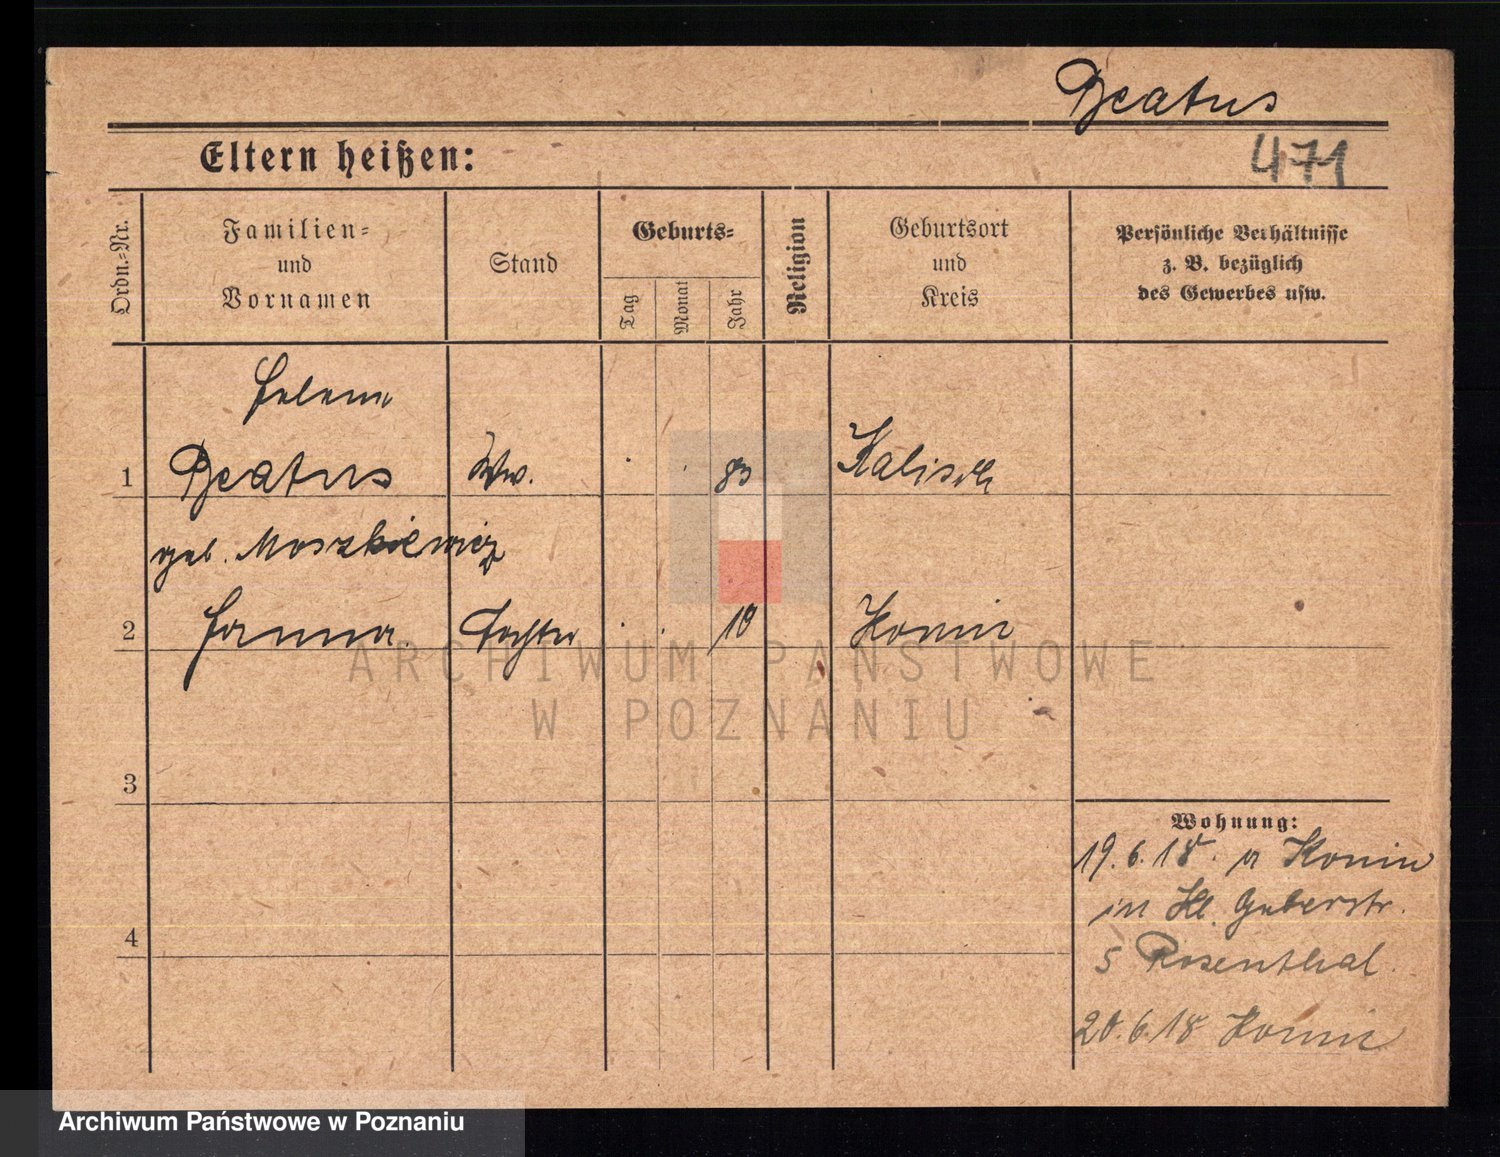 Beatus
471
Eltern heißen:
Ordn.-Nr.
Familien-
und
Vornamen
Stand
Geburts-
Tag
Monat
Jahr
Religion
Geburtsort
und
Kreis
Persönliche Verhältnisse
z. B. bezüglich
des Gewerbes usw.
Helene
1 Beatus Ww. 83 Kalisch
geb. Moszkiewicz
2 Hanna Tochter 10 Konin
3
4
Wohnung:
19.6.18. v Konin
in Kl. Gerberstr.
5 Rosenthal
20.6.18 Konin
ARCHIWUM PAŃSTWOWE
W POZNANIU
Archiwum Państwowe w Poznaniu